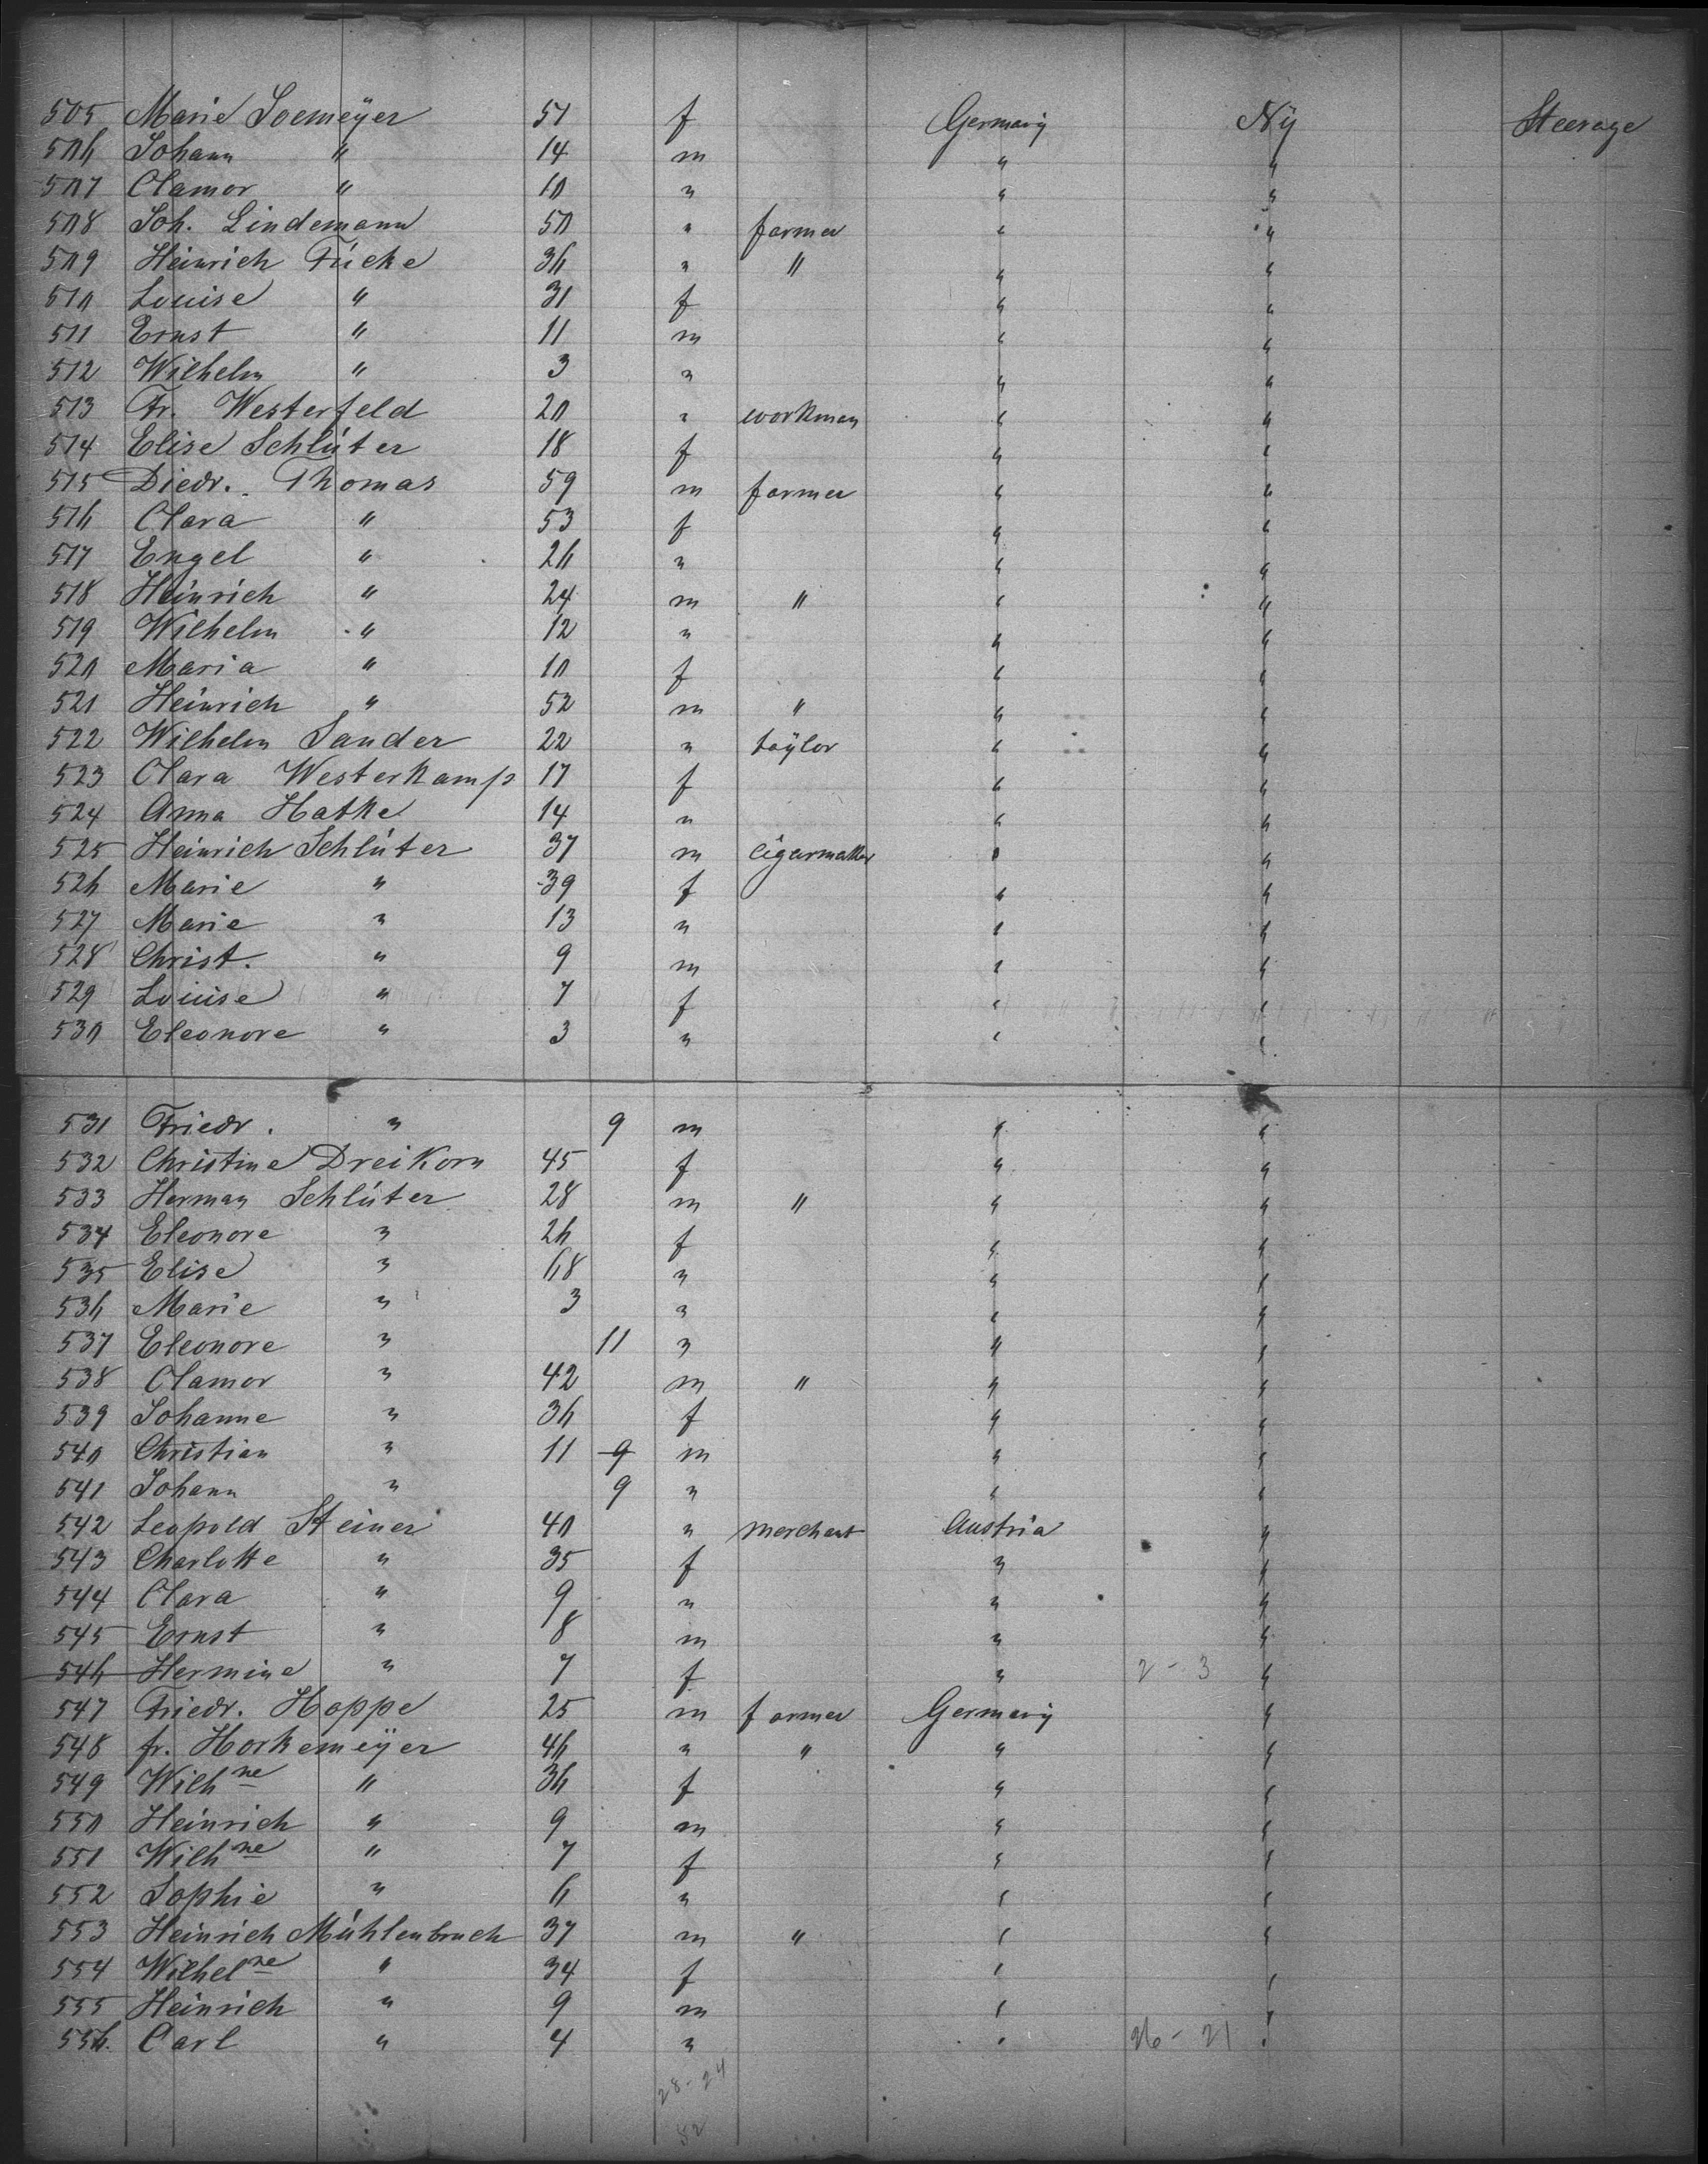 505 Marie Soemeÿer 51 f Germany Ny Steerage
506 Johann " 14 m " "
507 Clamor " 10 " " "
508 Joh. Lindemann 50 " farmer " "
509 Heinrich Fücke 36 " " " "
510 Louise " 31 f " "
511 Ernst " 11 m " "
512 Wilhelm " 3 " " "
513 Fr. Westerfeld 20 " workman " "
514 Elise Schlüter 18 f " "
515 Diedr. Thomas 59 m farmer " "
516 Clara " 53 f " "
517 Engel " 26 " " "
518 Heinrich " 24 m " " "
519 Wilhelm " 12 " " "
520 Maria " 10 f " "
521 Heinrich " 52 m " " "
522 Wilhelm Sander 22 " taylor " "
523 Clara Westerkamp 17 f " "
524 Anna Hatke 14 " " "
525 Heinrich Schlüter 37 m cigarmaker " "
526 Marie " 39 f " "
527 Marie " 13 " " "
528 Christ. " 9 m " "
529 Louise " 7 f " "
530 Eleonore " 3 " " "
531 Friedr. " 9 m " "
532 Christine Dreikorn 45 f " "
533 Herman Schlüter 28 m " " "
534 Eleonore " 26 f " "
535 Elise " 68 " " "
536 Marie " 3 " " "
537 Eleonore " 11 " " "
538 Clamor " 42 m " " "
539 Johanne " 36 f " "
540 Christian " 11 9 m " "
541 Johann " 9 " " "
542 Leopold Steiner 40 " merchant Austria "
543 Charlotte " 35 f " "
544 Clara " 9 " " "
545 Ernst " 8 m " "
546 Hermine " 7 f " 2 - 3 "
547 Friedr. Hoppe 25 m farmer Germany "
548 fr. Horkemeÿer 46 " " " "
549 Wilhne " 36 f " "
550 Heinrich " 9 m " "
551 Wilhne " 7 f " "
552 Sophie " 6 " " "
553 Heinrich Mühlenbruch 37 m " " "
554 Wilhelne " 34 f " "
555 Heinrich " 9 m " "
556. Carl " 4 " " 26 - 21 "
28 - 24
52